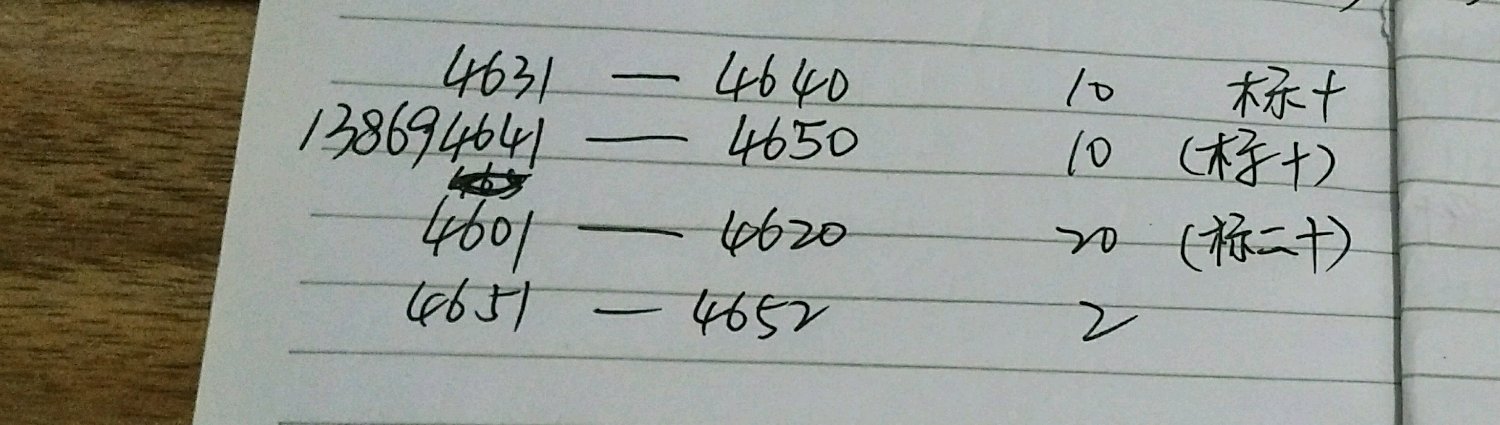 4631 — 4640 10 标十
138694641 — 4650 10 (标十)
4601 — 4620 20 (标二十)
4651 — 4652 2